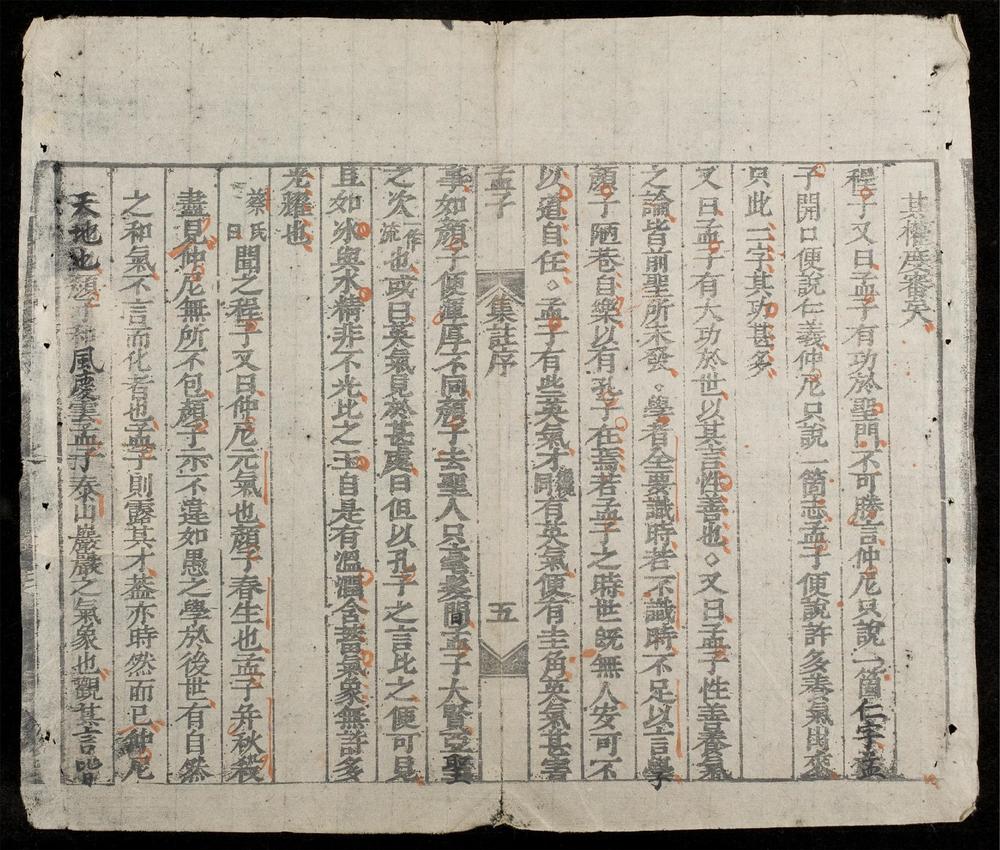 其權度審矣
程子又曰孟子有功於聖門不可勝言仲尼只說一箇仁字孟
子開口便說仁義仲尼只說一箇志孟子便說許多養氣出來
只此二字其功甚多
又曰孟子有大功於世以其言性善也○又曰孟子性善養氣
之論皆前聖所未發○學者全要識時若不識時不足以言學
顏子陋巷自樂以有孔子在焉若孟子之時世旣無人安可不
以道自任○孟子有些英氣才有英氣便有圭角英氣甚害
孟子
集註序
五
事如顏子便渾厚不同顏子去聖人只毫髮間孟子大賢亞聖
之次也或曰英氣見於甚處曰但以孔子之言比之便可見
且如氷與水精非不光比之玉自是有溫潤含蓄氣象無許多
光耀也
蔡氏曰間之程子又曰仲尼元氣也顏子春生也孟子并秋殺
盡見仲尼無所不包顏子示不違如愚之學於後世有自然
之和氣不言而化者也孟子則露其才蓋亦時然而已仲尼
天地也顏子和風慶雲孟子泰山巖巖之氣象也觀其言皆